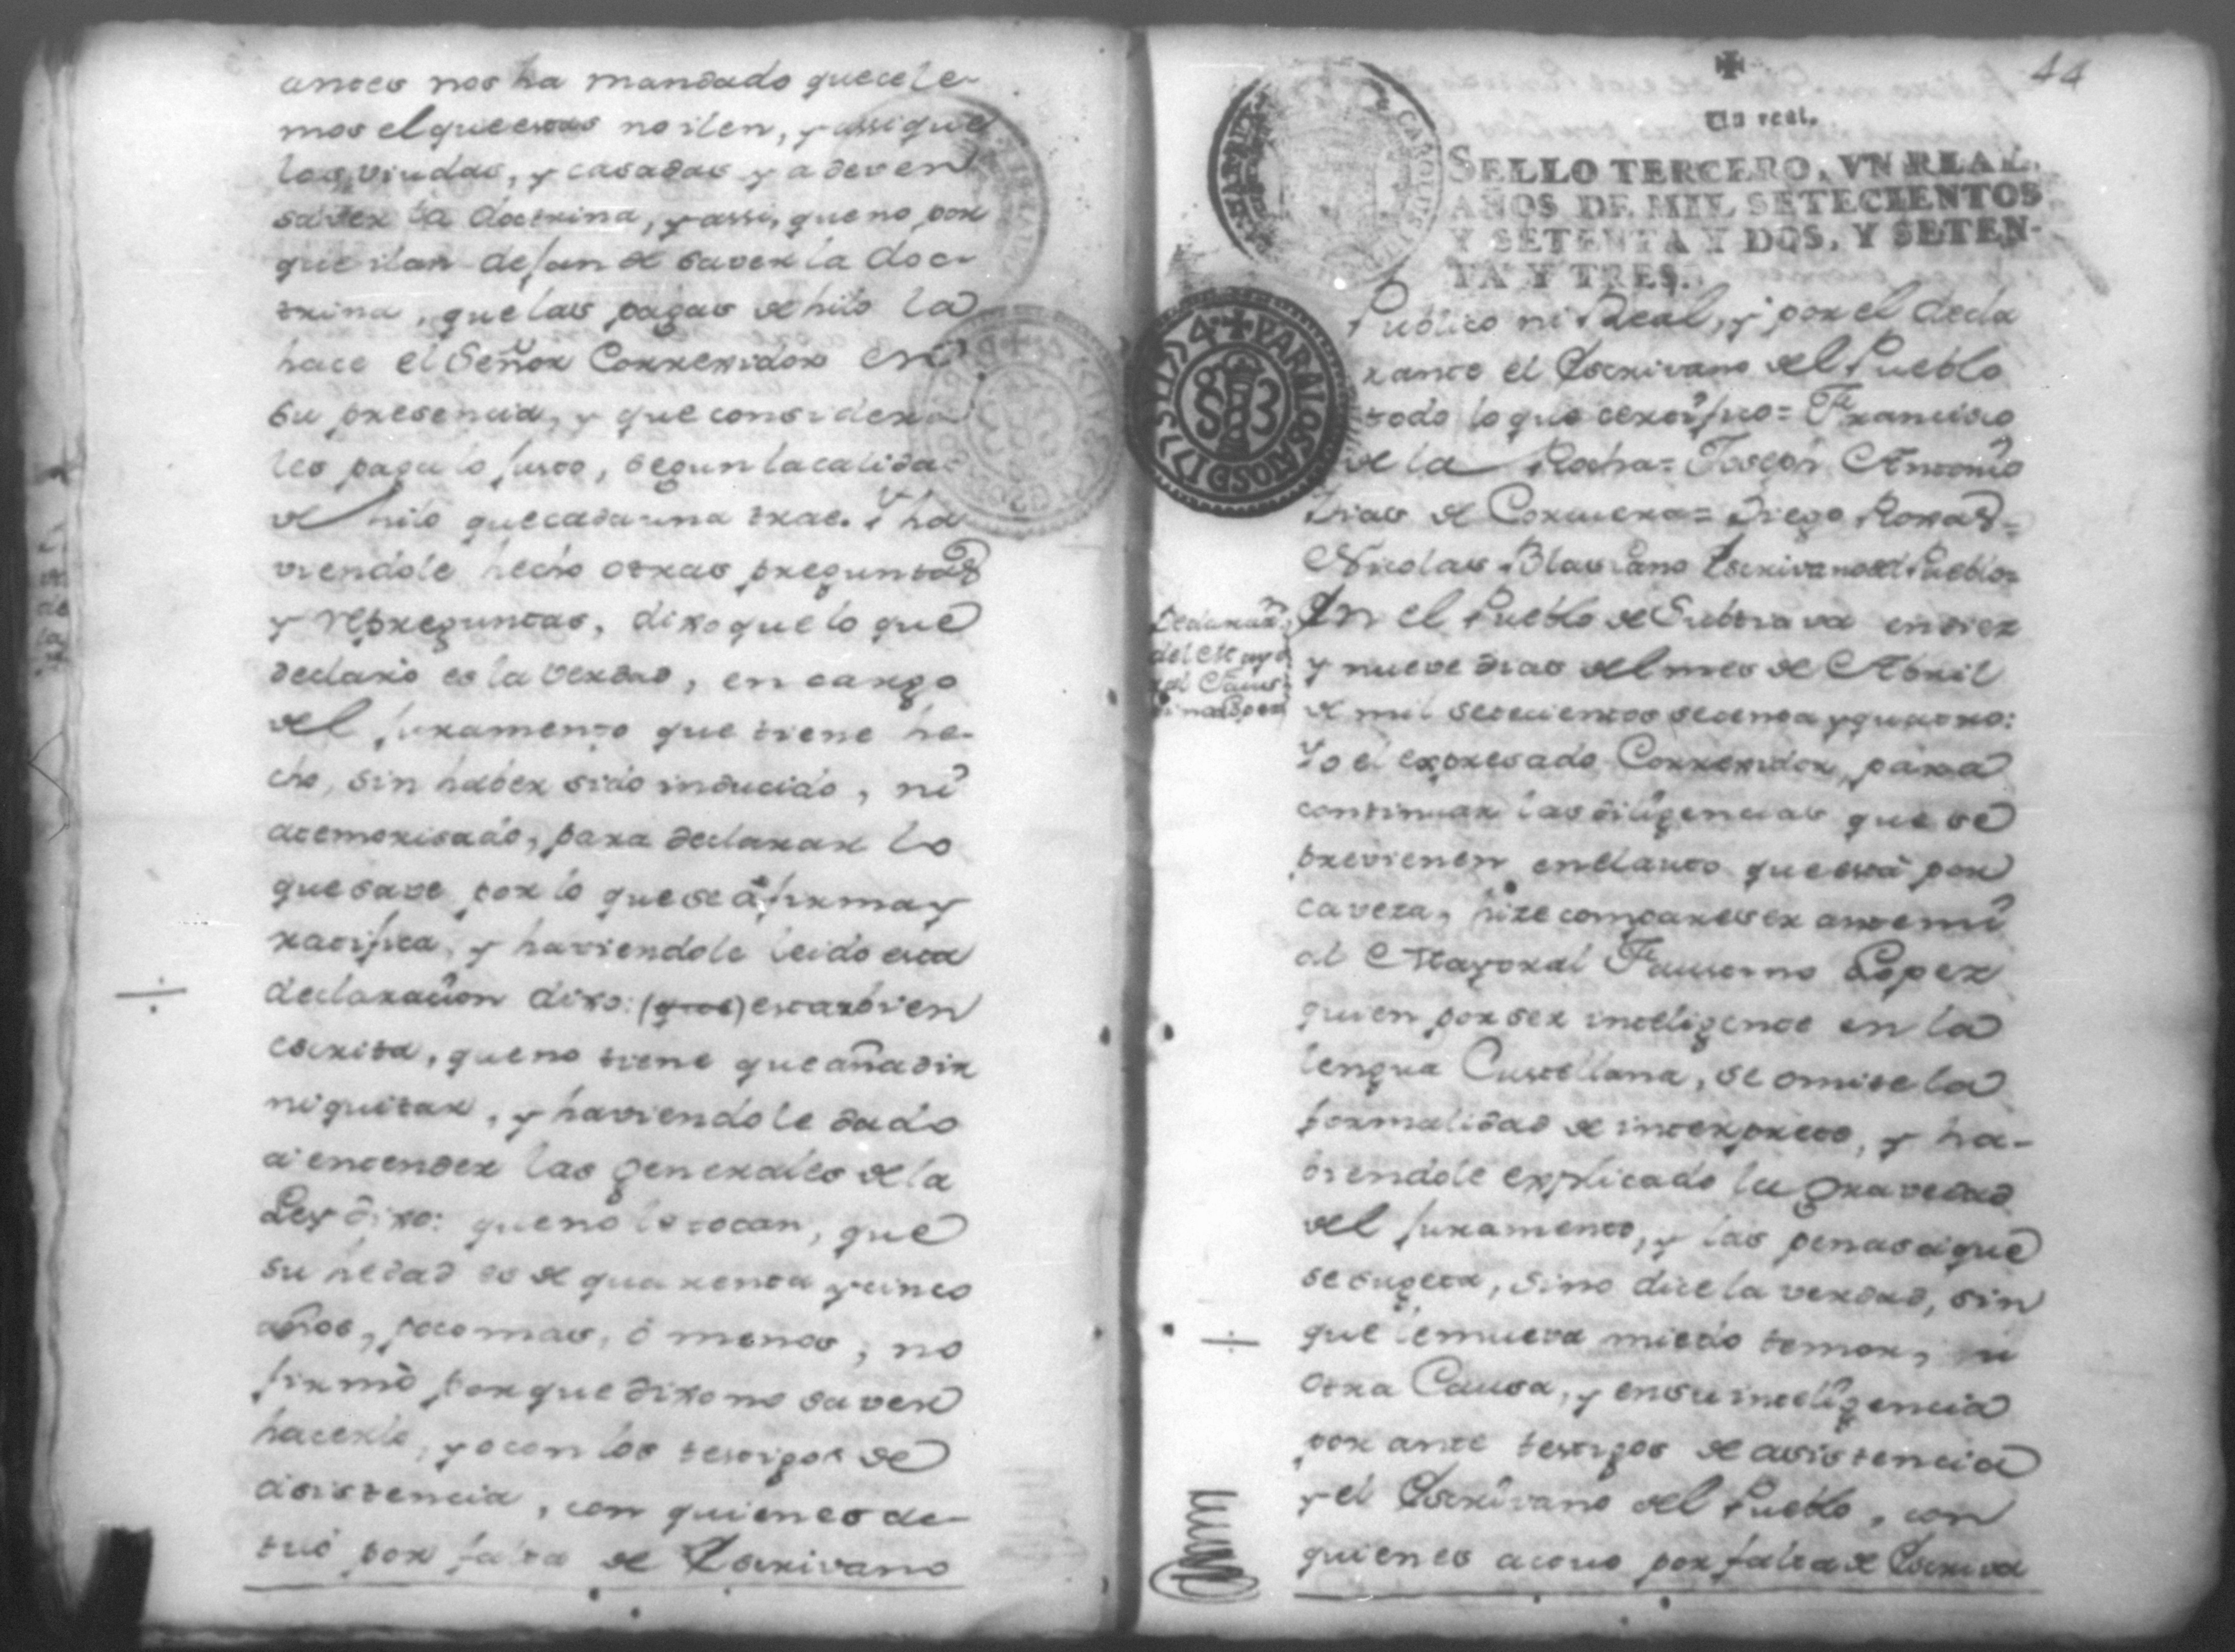 antes nos ha mandado que cele-
mos el que estas no ilen, y assi que
las viudas, y casadas ya deven
saver la doctrina, y assi, que no por
que ilan dejan de saver la doc-
trina, que las pagas de hilo la
hace el Señor Correxidor en
su presencia, y que considera
les paga lo justo, segun la calidad
de hilo que cada una trae. Y ha
viendole hecho otras preguntas
y repreguntas, dixo que lo que
declaró es la verdad, en cargo
del juramento que tiene he-
cho, sin haber sido inducido, ni
atemorisado, para declarar lo
que save por lo que se afirma y
ratifica, y haviendole leido esta
declaracion dixo: (que) estar bien
escrita, que no tiene que añadir
ni quitar, y haviendole dado
a entender las generales de la
Ley dixo: que no le tocan, que
su hedad es de quarenta y cinco
años, poco mas, ó menos, no
firmó porque dixo no saver
hacerlo, yo con los testigos de
asistencia, con quienes ac-
tuó por falta de Escrivano
44
Un real.
SELLO TERCERO, VN REAL,
AÑOS DE MIL SETECIENTOS
Y SETENTA Y DOS, Y SETEN-
TA Y TRES.
CAROLUS III
PARA LOS AÑOS D 1775 Y 1774
Publico ni Real, y por el decla
rante el Escrivano del Pueblo
todo lo que certifico = Francisco
de la Rocha = Joseph Antonio
Dias de Corcuera = Diego Rosas =
Nicolas Blas Cano Escrivano del Pueblo =
Declaraon
del Mayo
ral Faus-
tino Lopez
En el Pueblo de Subtiava en diez
y nueve dias del mes de Abril
de mil setecientos setenta y quatro:
Yo el expresado Correxidor, para
continuar las diligencias que se
previenen en el auto que está por
caveza, hize compareser ante mi
al Mayoral Faustino Lopez
quien por ser inteligente en la
lengua Castellana, se omite la
formalidad de interprete, y ha-
biendole explicado la gravedad
del juramento, y las penas a que
se sugeta, sino dice la verdad, sin
que le mueva miedo temor, ni
otra Causa, y en su inteligencia
por ante testigos de asistencia
y el Escrivano del Pueblo, con
quienes actuo por falta de Escriva